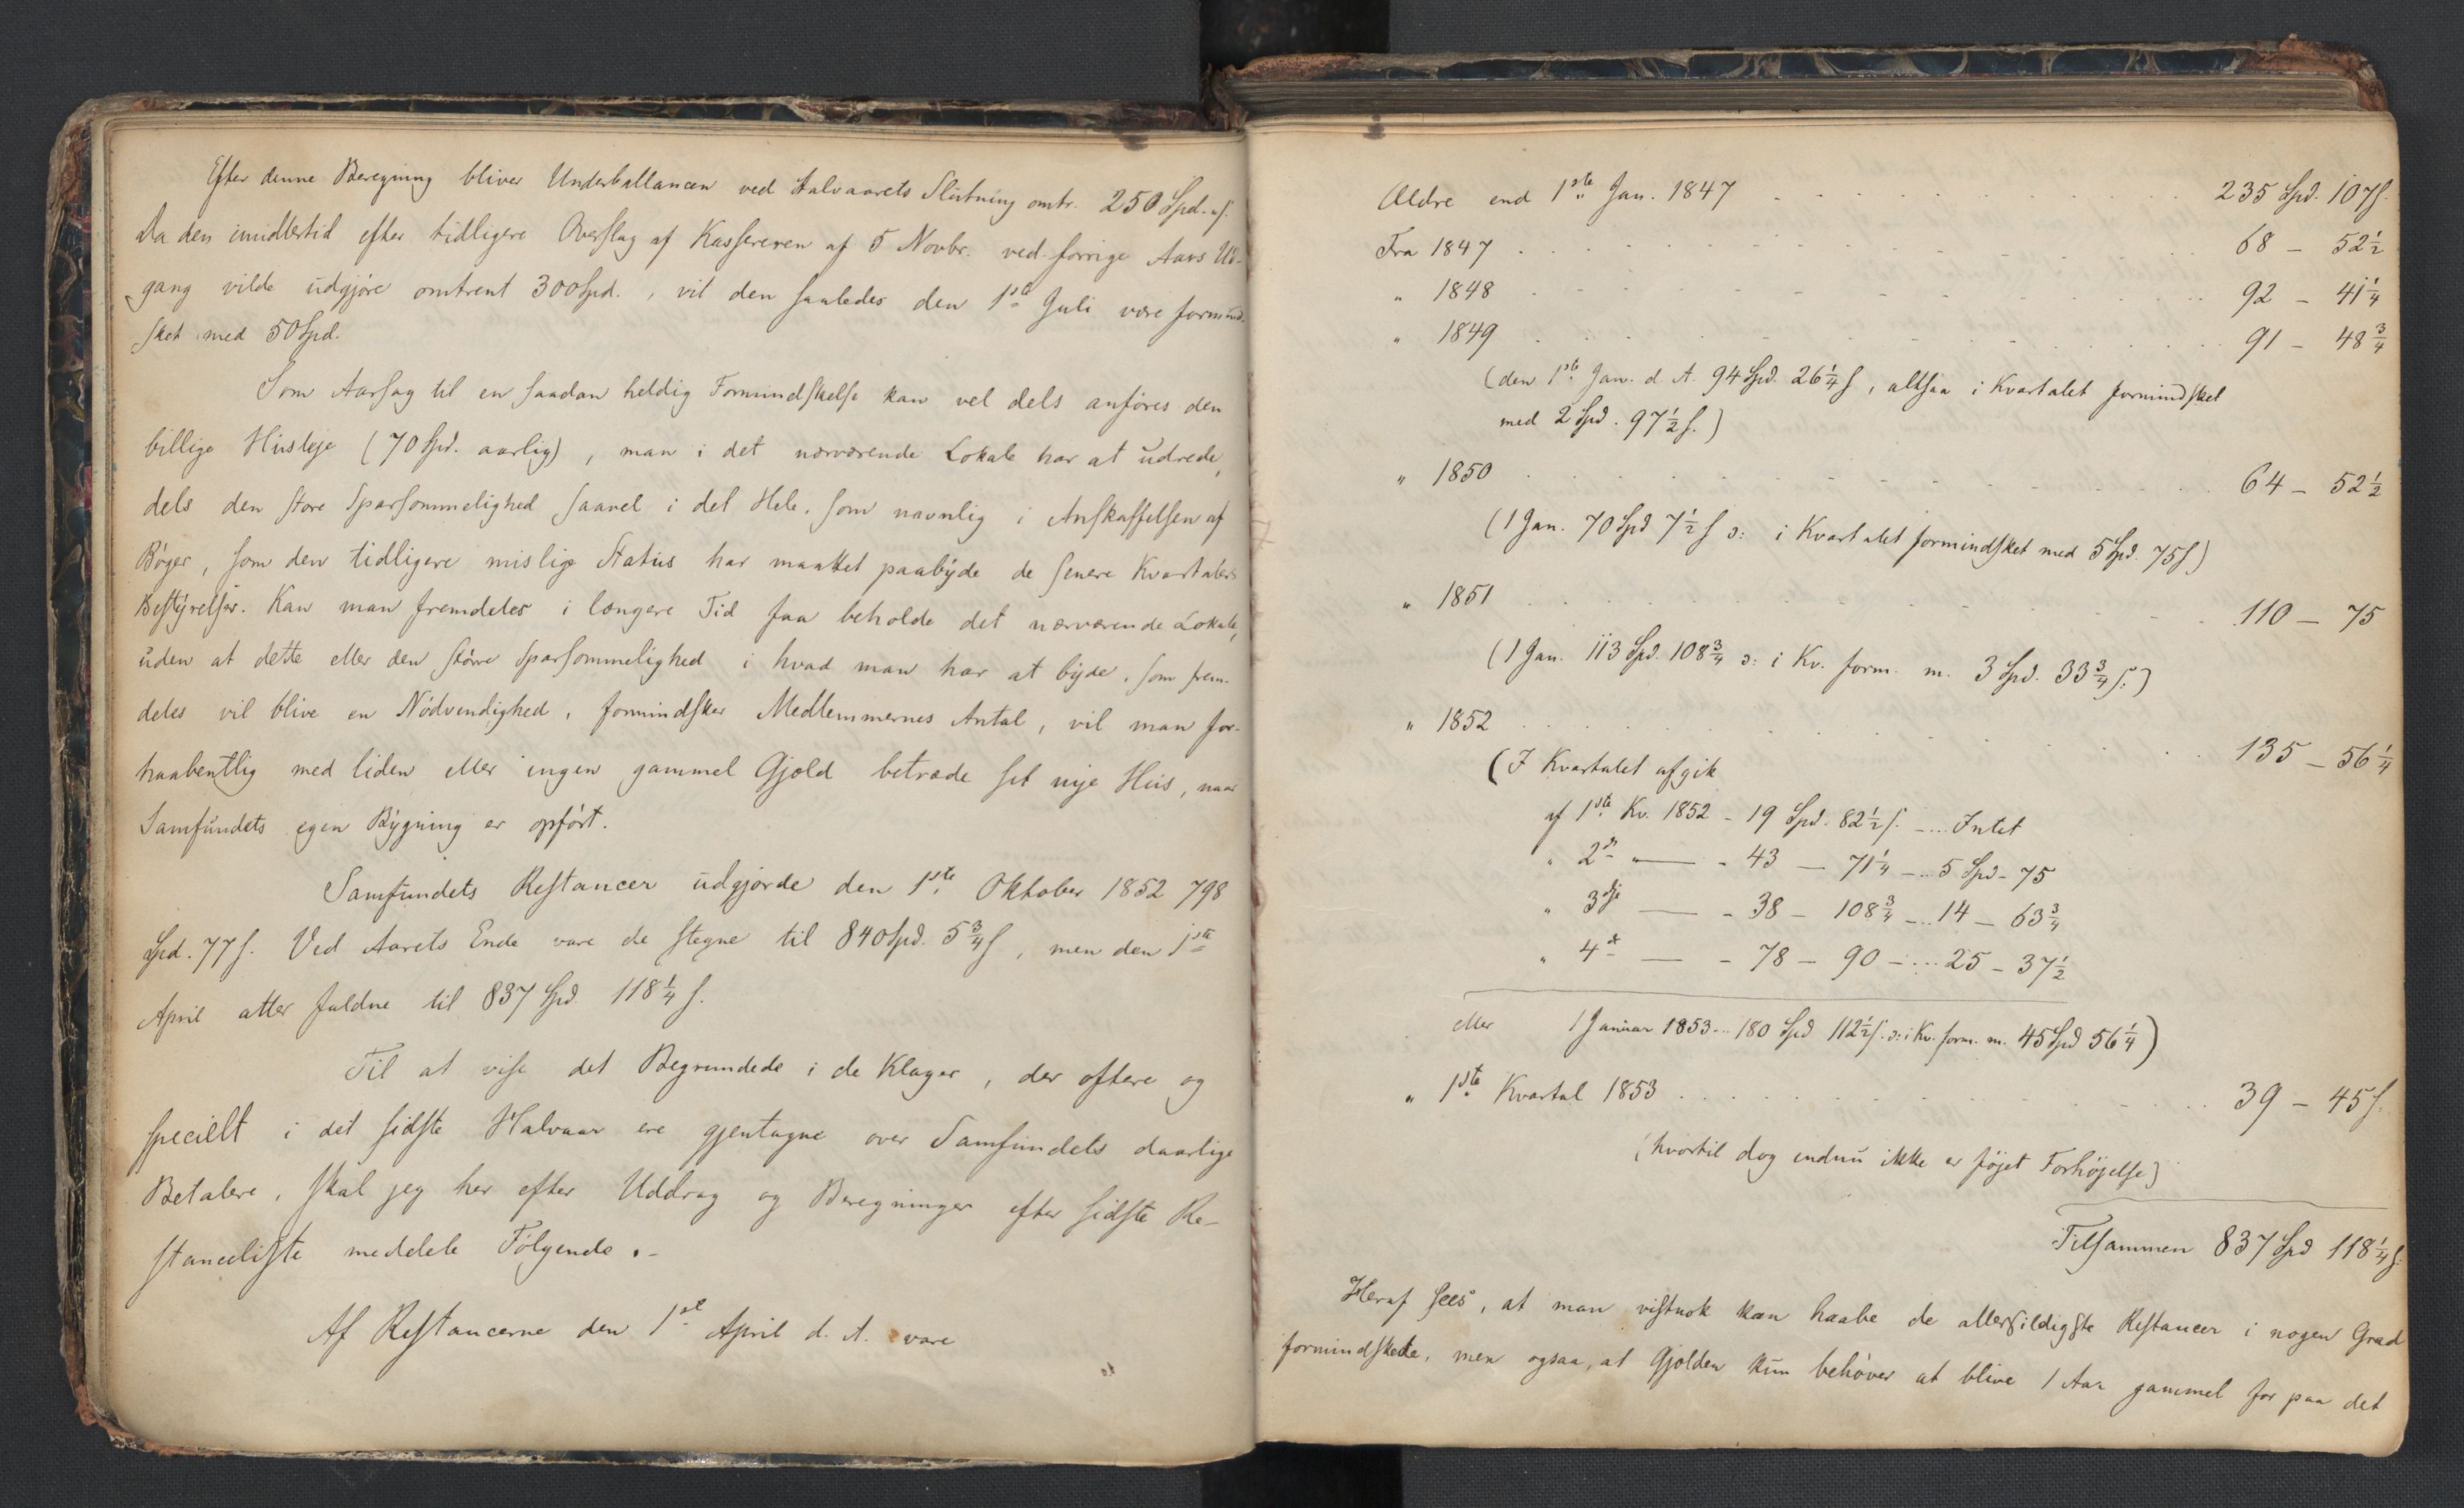 Efter denne Beregning bliver Underballancen ved Halvaarets Slutning omtr. 250 Spd.
Da den imidlertid efter tidligere Overslag af Kassereren af 5 Novbr. ved forrige Aars Ud-
gang vilde udgjøre omtrent 300 Spd., vil den saaledes den 1ste Juli være formind-
sket med 50 Spd.
Som Aarsag til en saadan heldig Formindskelse kan vel dels anføres den
billige Husleje (70 Spd. aarlig), man i det nærværende Lokale har at udrede,
dels den store Sparsommelighed saavel i det Hele, som navnlig i Anskaffelsen af
Bøger, som den tidligere mislige Status har maattet paabyde de senere Kvartalers
Bestyrelser. Kan man fremdeles i længere Tid faa beholde det nærværende Lokale,
uden at dette eller den større Sparsommelighed i hvad man har at byde, som frem-
deles vil blive en Nødvendighed, formindsker Medlemmernes Antal, vil man for-
haabentlig med liden eller ingen gammel Gjæld betræde sit nye Hus, naar
Samfundets egen Bygning er opført.
Samfundets Restancer udgjorde den 1ste Oktober 1852 798
Spd. 77 s. Ved Aarets Ende vare de stegne til 840 Spd. 5 3/4 s, men den 1ste
April atter faldne til 837 Spd. 118 1/4 s.
Til at vise det Begrundede i de Klager, der oftere og
specielt i det sidste Halvaar ere gjentagne over Samfundets daarlige
Betalere, skal jeg her efter Uddrag og Beregninger efter sidste Re-
stanceliste meddele Følgende.-
Af Restancerne den 1ste April d. A. vare
Ældre end 1ste Jan. 1847 . . . 235 Spd. 107 s.
Fra 1847 . . . 68 - 52 1/2
" 1848 . . . 92 - 41 1/4
" 1849 . . . 91 - 48 3/4
(den 1ste Jan. d. A. 94 Spd. 26 1/4 s, altsaa i Kvartalet formindsket
med 2 Spd. 97 1/2 s.)
" 1850 . . . 64 - 52 1/2
(1 Jan. 70 Spd 7 1/2 s ɔ: i Kvartalet formindsket med 5 Spd. 75 s)
" 1851 . . . 110 - 75
(1 Jan. 113 Spd. 108 3/4 ɔ: i Kv. form. m. 3 Spd. 33 3/4 s.)
" 1852 . . . 135 - 56 1/4
(I Kvartalet afgik
af 1ste Kv. 1852 - 19 Spd. 82 1/2 s. - ... Intet
" 2det " — - 43 — 71 1/4 - .. 5 Spd - 75
" 3die — - 38 - 108 3/4 - .. 14 - 63 3/4
" 4de — - 78 - 90 - ... 25 - 37 1/2
eller 1 Januar 1853 ... 180 Spd 112 1/2 s. ɔ: i Kv. form. m. 45 Spd 56 1/4)
" 1ste Kvartal 1853 . . . 39 - 45 s.
(hvortil dog endnu ikke er føjet Forhøjelse)
Tilsammen 837 Spd 118 1/4 s.
Heraf sees, at man vistnok kan haabe de allersildigste Restancer i nogen Grad
formindskede, men ogsaa, at Gjælden kun behøver at blive 1 Aar gammel for paa det